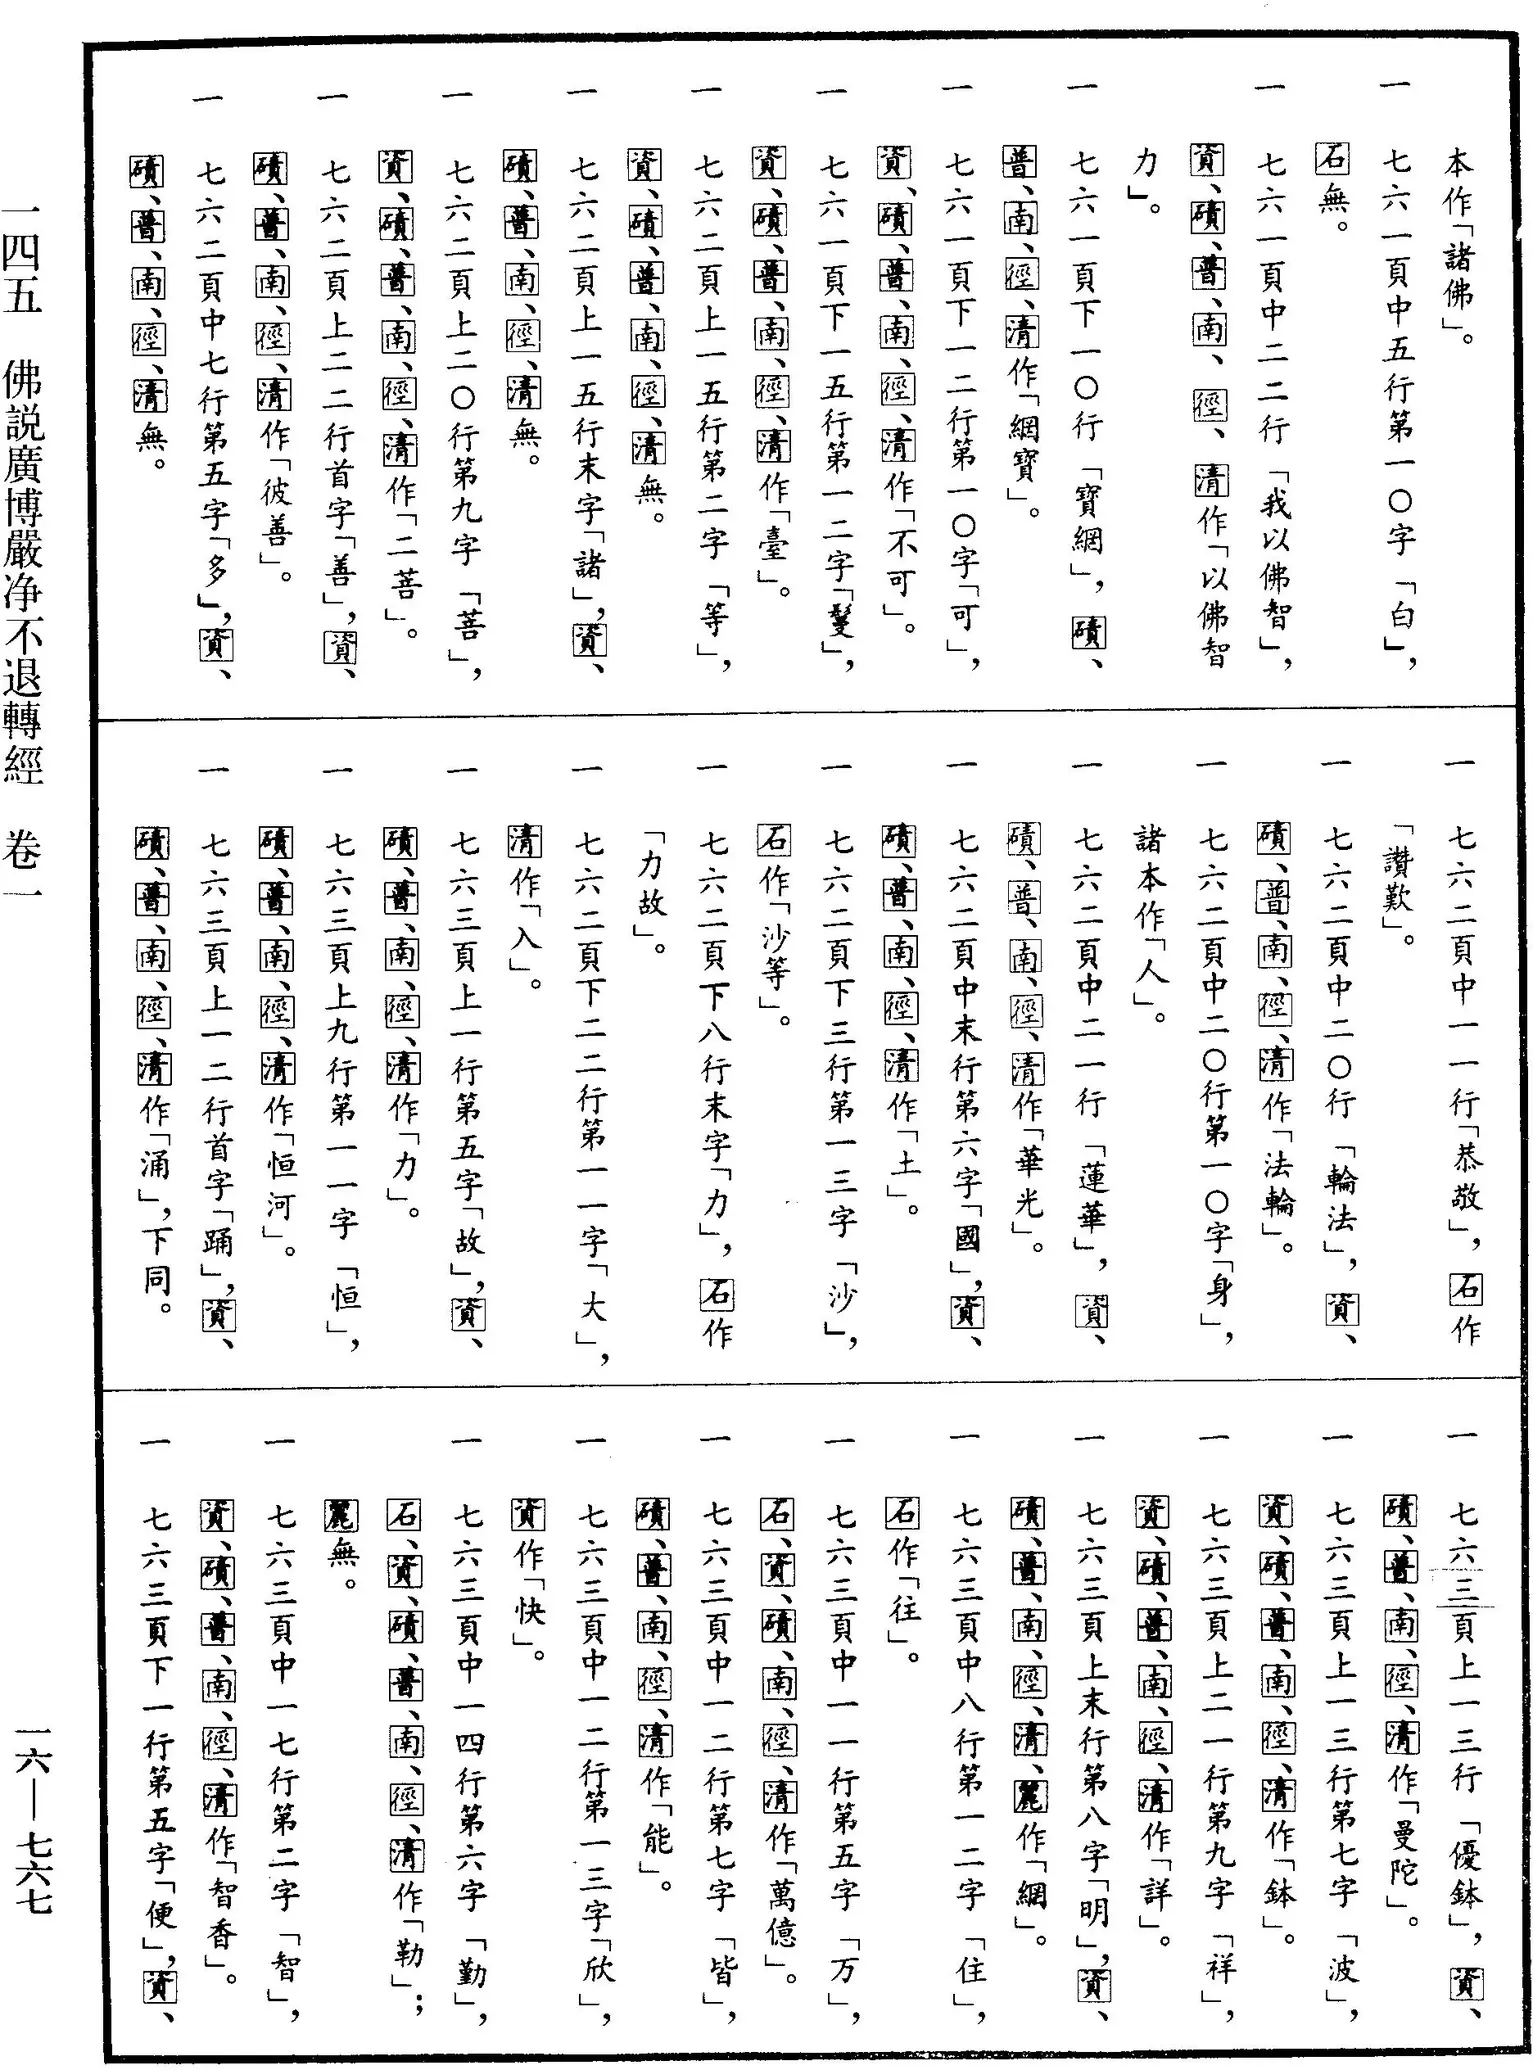 本作「諸佛」。
一　七六一頁中五行第一〇字「白」，
石無。
一　七六一頁中二二行「我以佛智」，
資、磧、普、南、徑、清作「以佛智
力」。
一　七六一頁下一〇行「寶網」，磧、
普、南、徑、清作「網寶」。
一　七六一頁下一二行第一〇字「可」，
資、磧、普、南、徑、清作「不可」。
一　七六一頁下一五行第一二字「鬘」，
資、磧、普、南、徑、清作「臺」。
一　七六二頁上一五行第二字「等」，
資、磧、普、南、徑、清無。
一　七六二頁上一五行末字「諸」，資、
磧、普、南、徑、清無。
一　七六二頁上二〇行第九字「菩」，
資、磧、普、南、徑、清作「二菩」。
一　七六二頁上二二行首字「善」，資、
磧、普、南、徑、清作「彼善」。
一　七六二頁中七行第五字「多」，資、
磧、普、南、徑、清無。
一　七六二頁中一一行「恭敬」，石作
「讚歎」。
一　七六二頁中二〇行「輪法」，資、
磧、普、南、徑、清作「法輪」。
一　七六二頁中二〇行第一〇字「身」，
諸本作「人」。
一　七六二頁中二一行「蓮華」，資、
磧、普、南、徑、清作「華光」。
一　七六二頁中末行第六字「國」，資、
磧、普、南、徑、清作「土」。
一　七六二頁下三行第一三字「沙」，
石作「沙等」。
一　七六二頁下八行末字「力」，石作
「力故」。
一　七六二頁下二二行第一一字「大」，
清作「入」。
一　七六三頁上一行第五字「故」，資、
磧、普、南、徑、清作「力」。
一　七六三頁上九行第一一字「恒」，
磧、普、南、徑、清作「恒河」。
一　七六三頁上一二行首字「踊」，資、
磧、普、南、徑、清作「涌」，下同。
一　七六三頁上一三行「優鉢」，資、
磧、普、南、徑、清作「曼陀」。
一　七六三頁上一三行第七字「波」，
資、磧、普、南、徑、清作「鉢」。
一　七六三頁上二一行第九字「祥」，
資、磧、普、南、徑、清作「詳」。
一　七六三頁上末行第八字「明」，資、
磧、普、南、徑、清、麗作「網」。
一　七六三頁中八行第一二字「住」，
石作「往」。
一　七六三頁中一一行第五字「万」，
石、資、磧、南、徑、清作「萬億」。
一　七六三頁中一二行第七字「皆」，
磧、普、南、徑、清作「能」。
一　七六三頁中一二行第一三字「欣」，
資作「快」。
一　七六三頁中一四行第六字「勤」，
石、資、磧、普、南、徑、清作「勒」；
麗無。
一　七六三頁中一七行第二字「智」，
資、磧、普、南、徑、清作「智香」。
一　七六三頁下一行第五字「便」，資、
一四五　佛説廣博嚴净不退轉經　卷一
一六—七六七